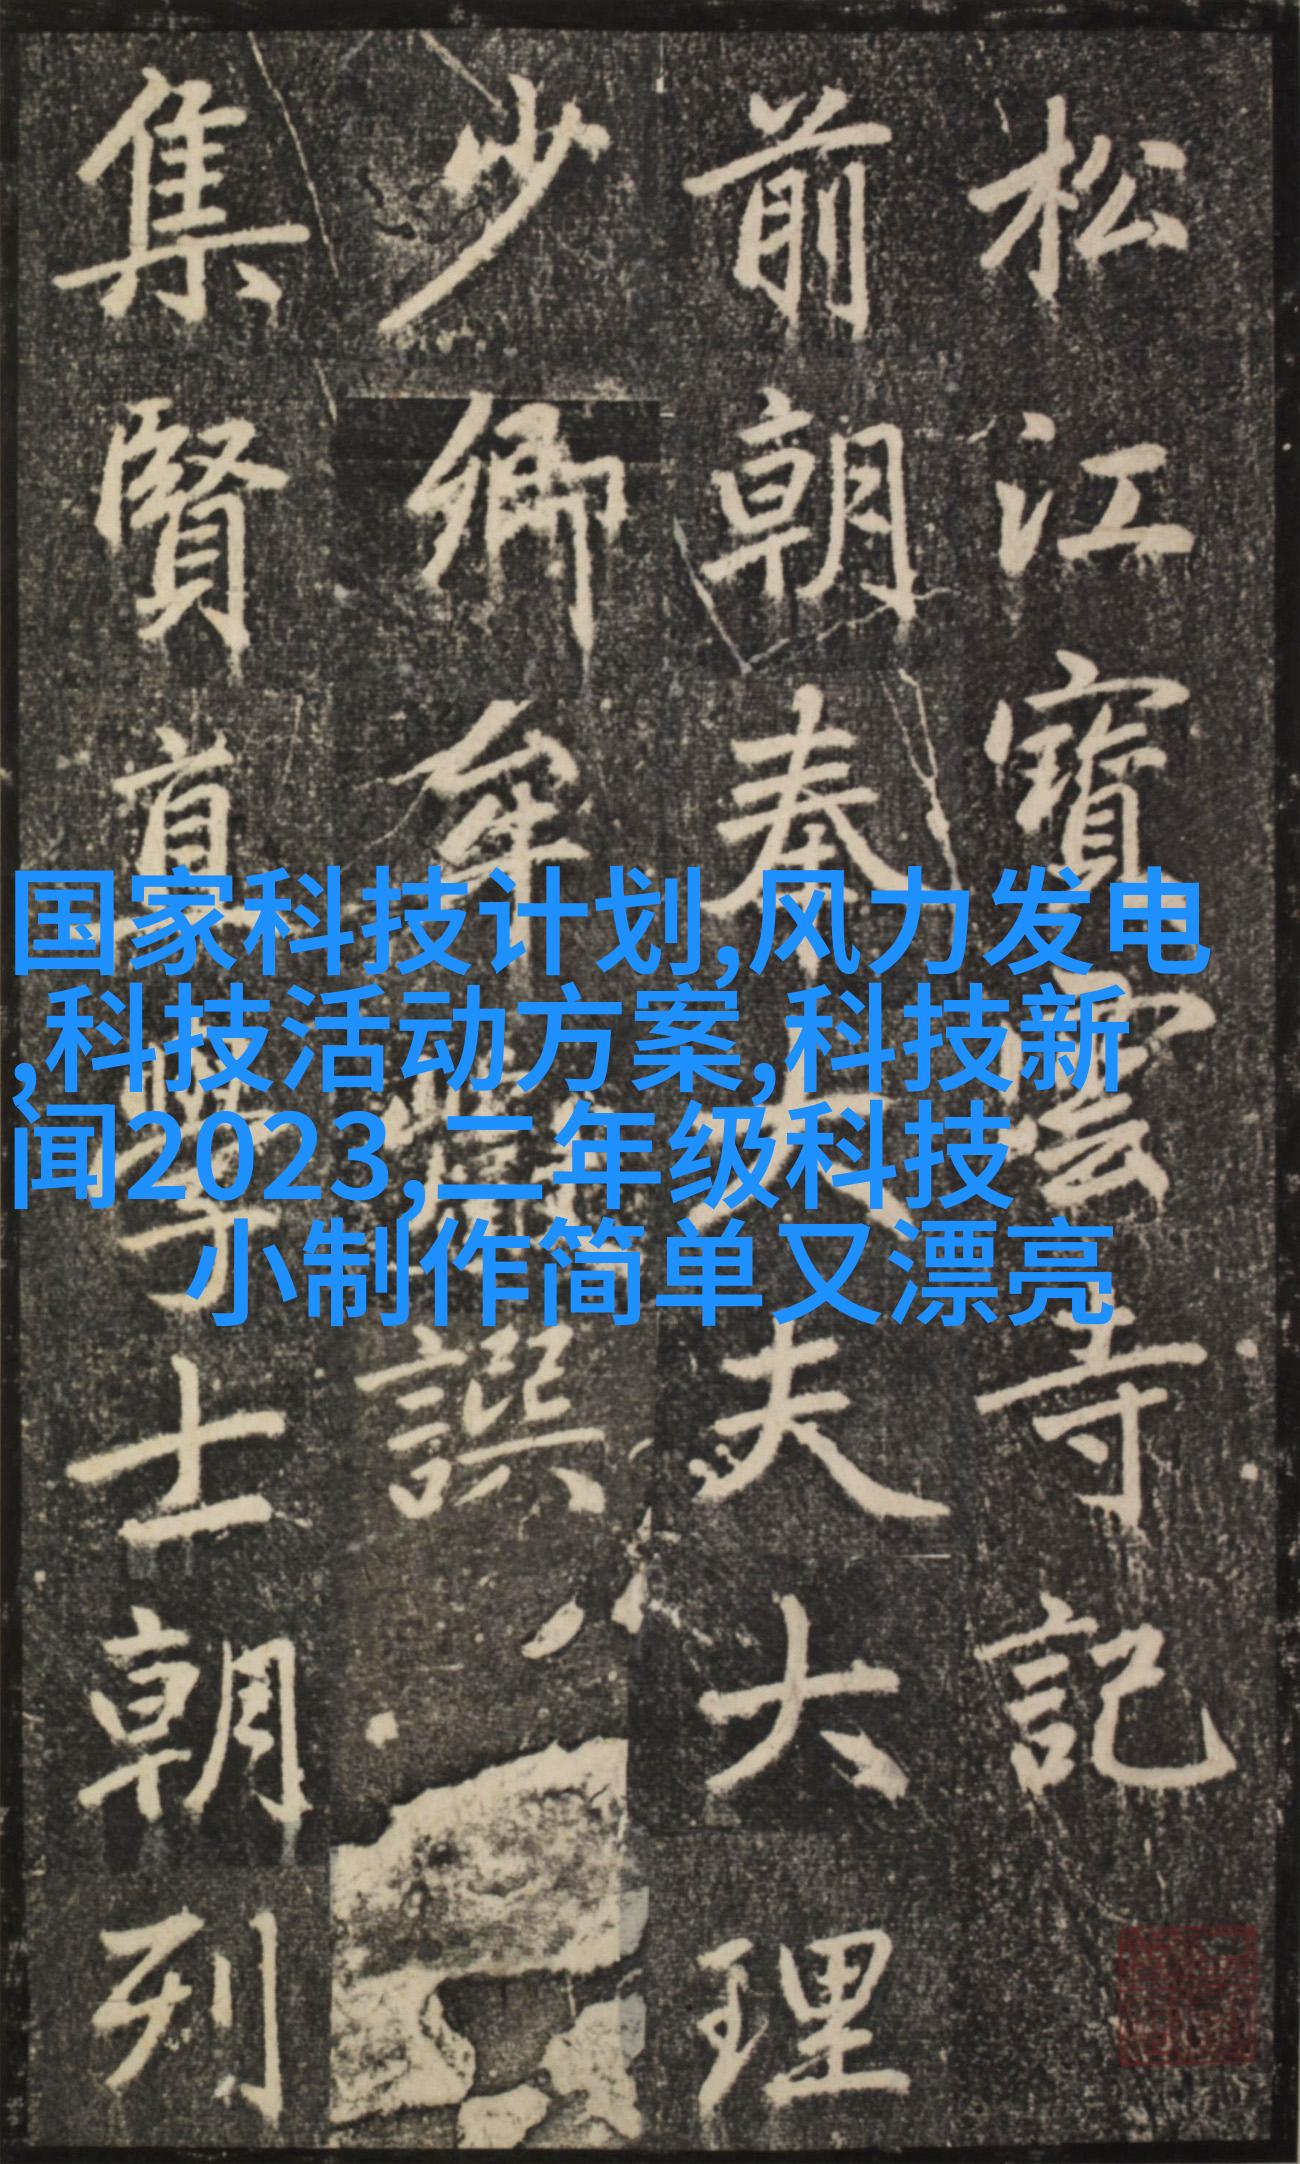 松江寶雲寺記
前朝奉大夫大理
少卿牟巘譔
集賢直學士朝列
国家科技计划,风力发电
,科技活动方案,科技新
闻2023,二年级科技
小制作简单又漂亮